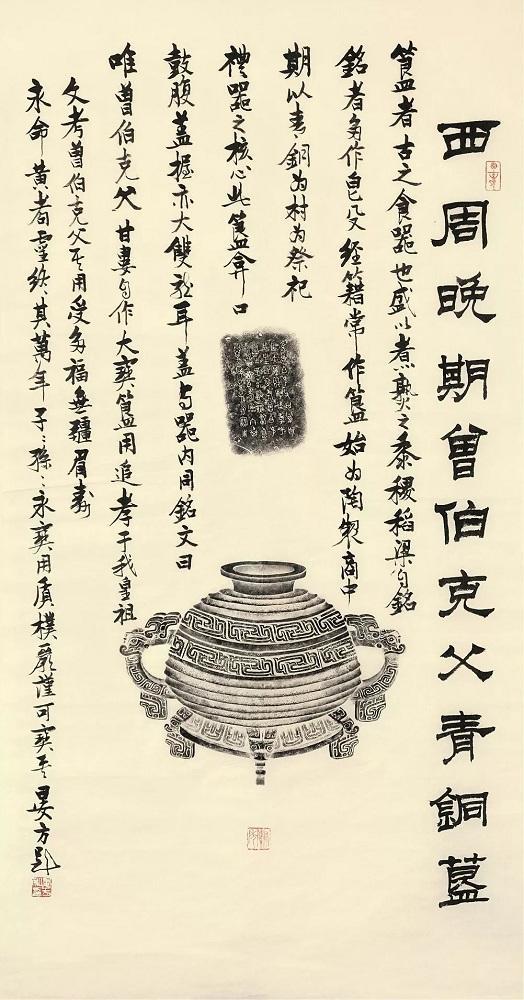 西周晚期曾伯克父青銅簋
簋者古之食器也盛以煮熟之黍稷稻梁自銘
銘者多作皀殳經籍常作簋始为陶製商中
期以青銅为材为祭祀
禮器之核心此簋弇口
鼓腹蓋握亦大雙龍耳蓋与器内用銘文曰
唯曾伯克父甘婁自作大寶簋用追孝于我皇祖
文考曾伯克父其用受多福無疆眉壽
永命黃耇霝終其萬年子〻孫〻永寶用質樸嚴謹可寶其晏方題